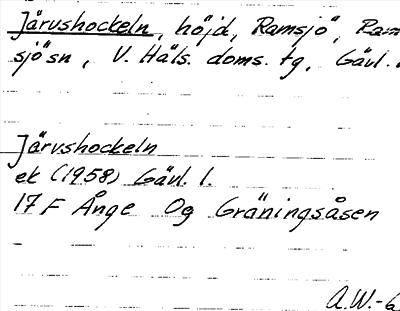 Järvshockeln, höjd, Ramsjö, Ram
sjösn, V. Häls. doms. tg, Gävl.
Järvshockeln
ek (1958) Gävl. l.
17 F Ånge Og Gräningsåsen
A.W.-6